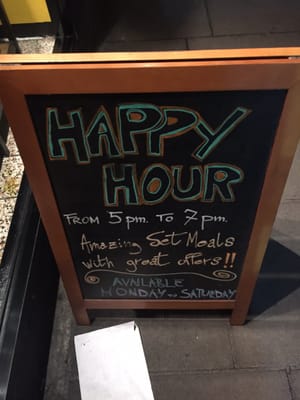 HAPPY
HOUR
FROM 5pm. TO 7pm.
Amazing Set Meals
with great offers!!
AVAILABLE
MONDAY TO SATURDAY